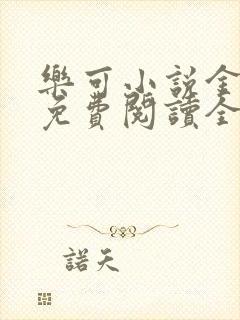 樂可小說全
免費閱讀全
諾天